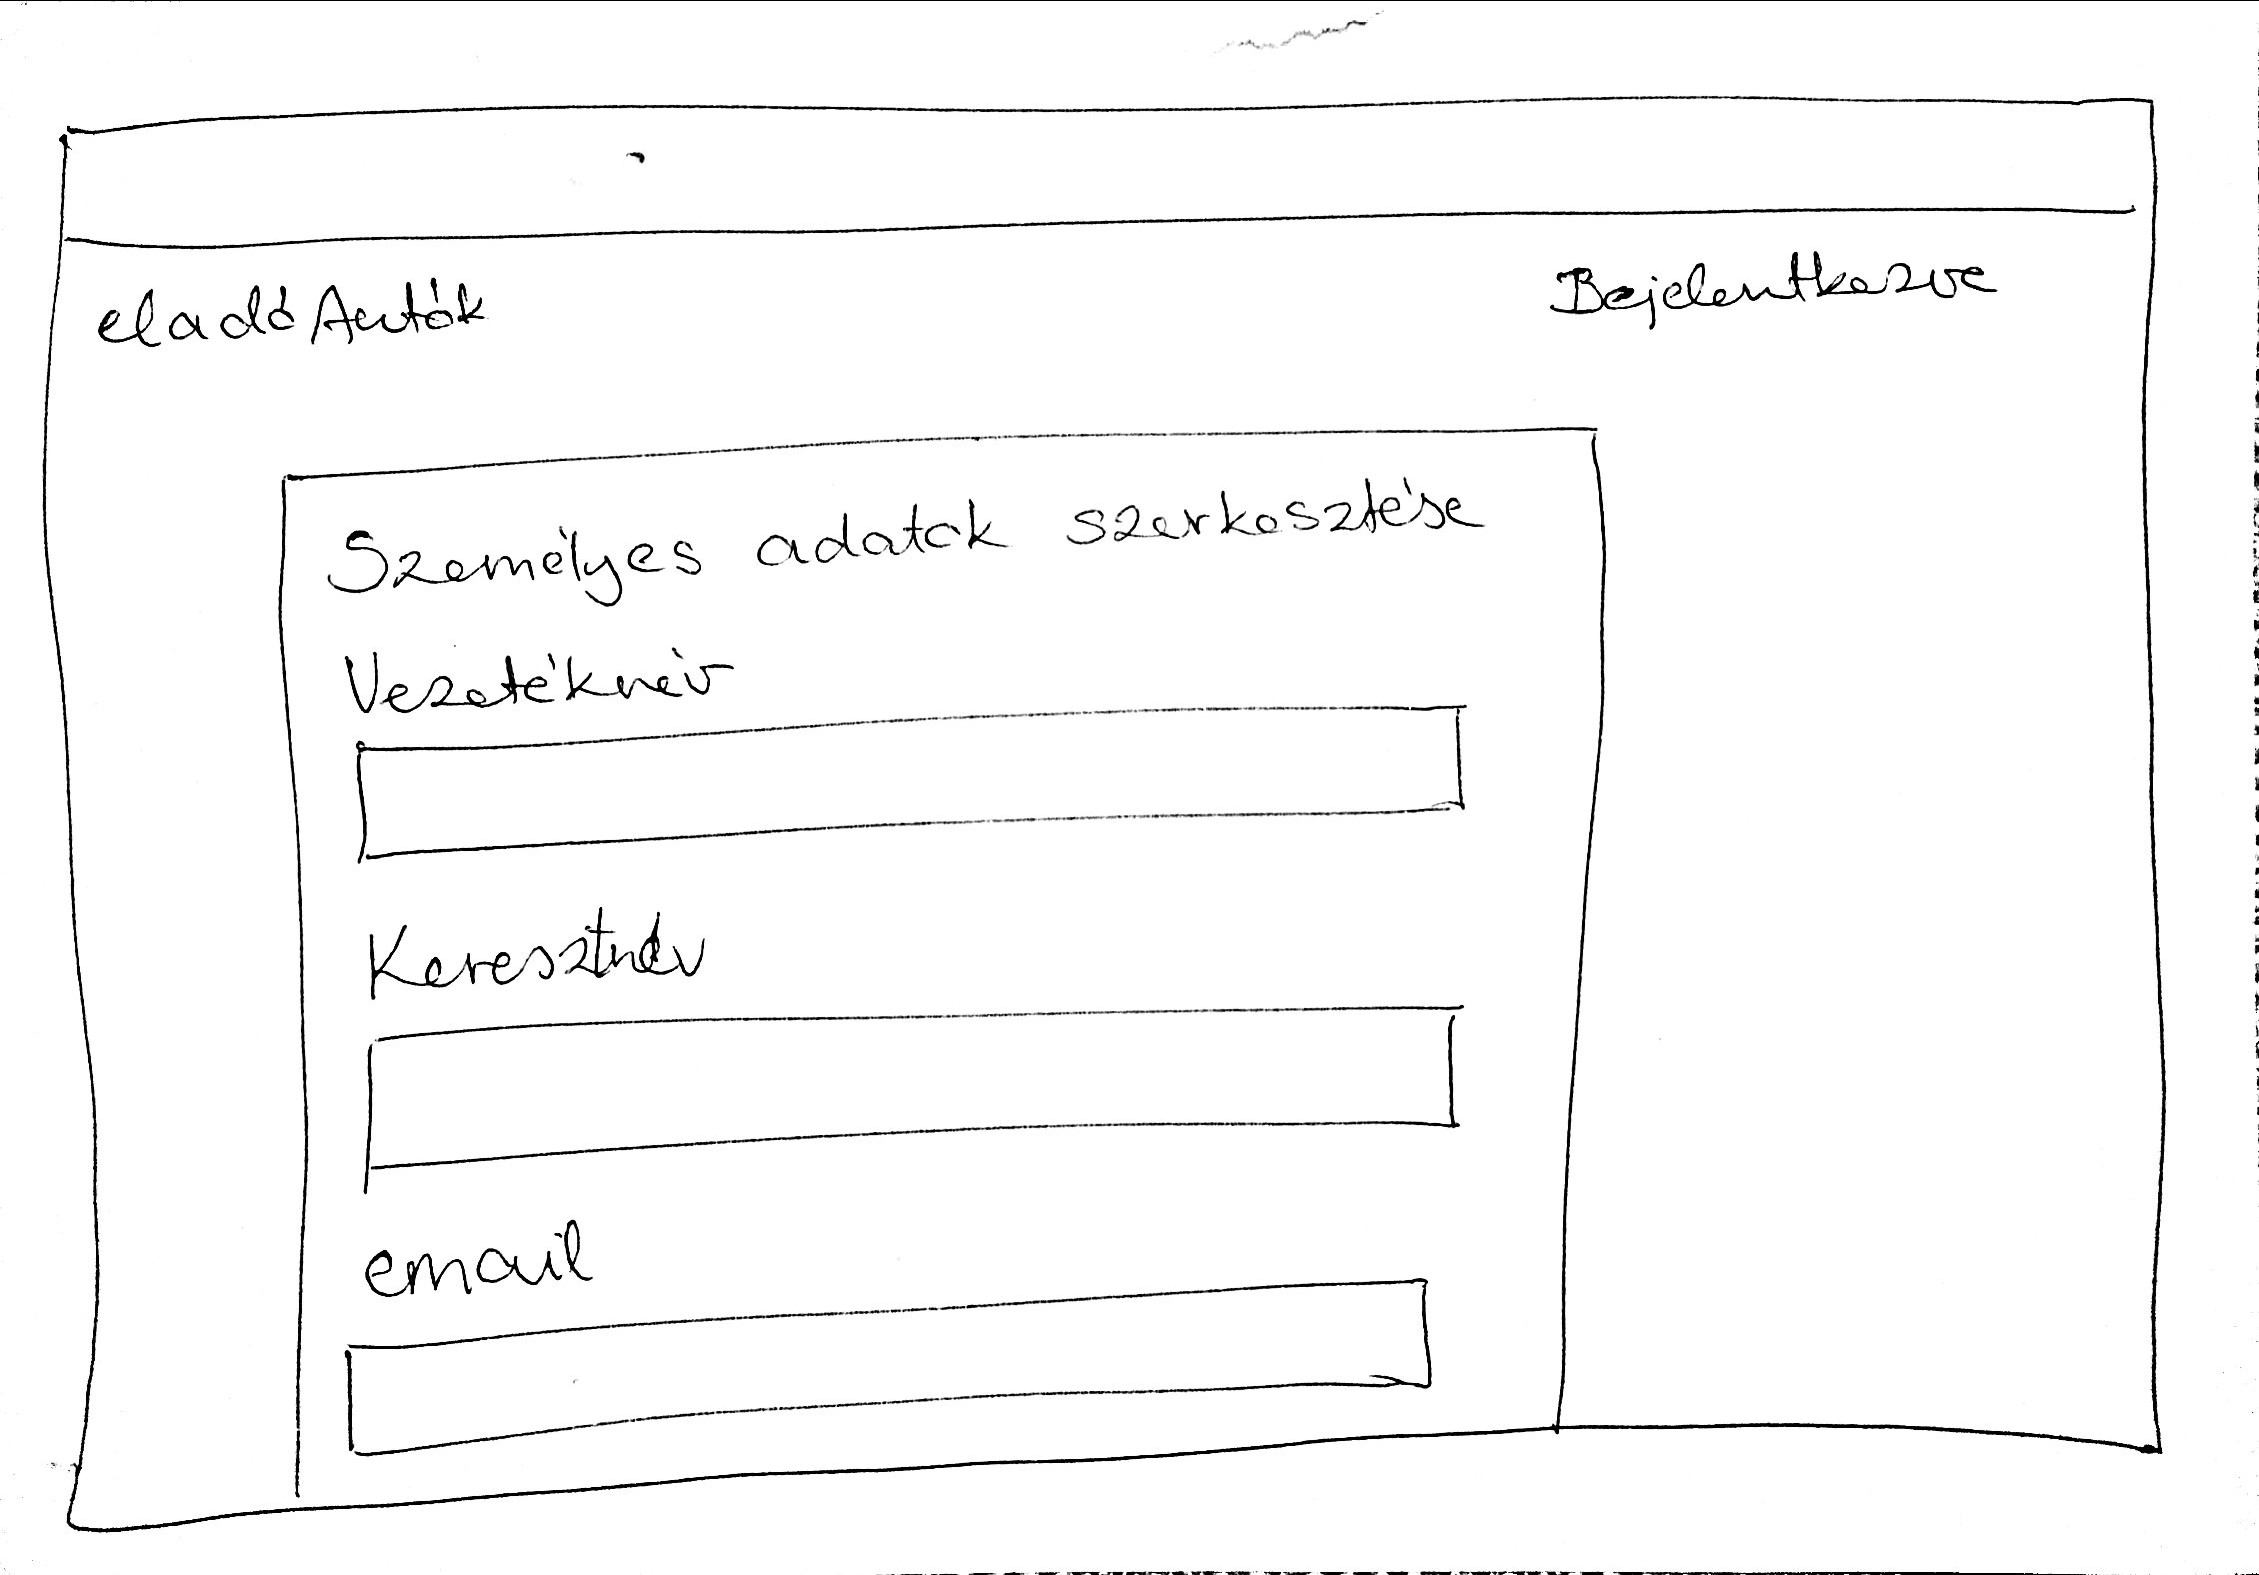 eladó Autók
Bejelentkezve
Személyes adatok szerkesztése
Vezetéknév
Keresztnév
email